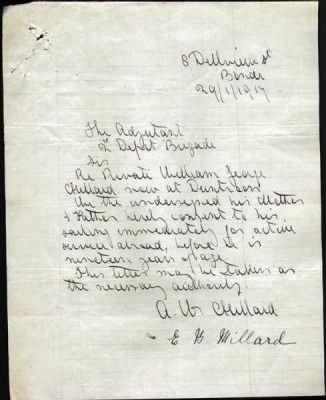 8 Dellview St
Bondi
29/1/1917
The Adjutant
Depot Brigade
Sir
Re Private William George
Millard now at Duntroon
We the undersigned his Mother
& Father hereby consent to his
sailing immediately for active
service abroad, before he is
nineteen years of age.
This letter may be taken as
the necessary authority
A. W. Millard
E B Millard